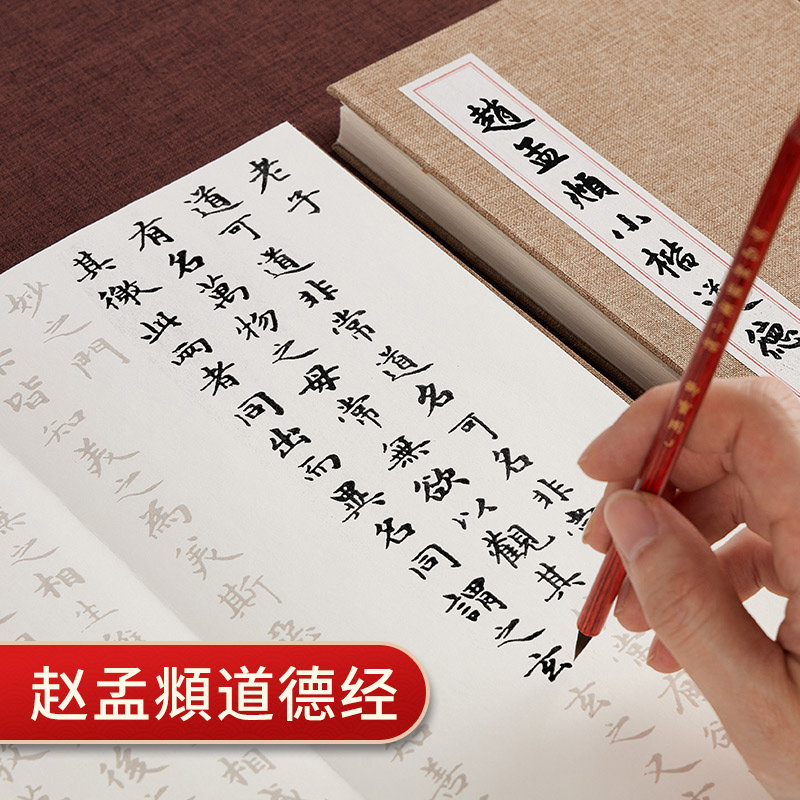 趙孟頫小楷道德
老子
道可道非常道名可名非常
有名萬物之母常無欲以觀其
常有欲
其徼此兩者同出而異名同謂之玄
玄之又
妙之門
皆知美之為美斯惡
之相生
赵孟頫道德经